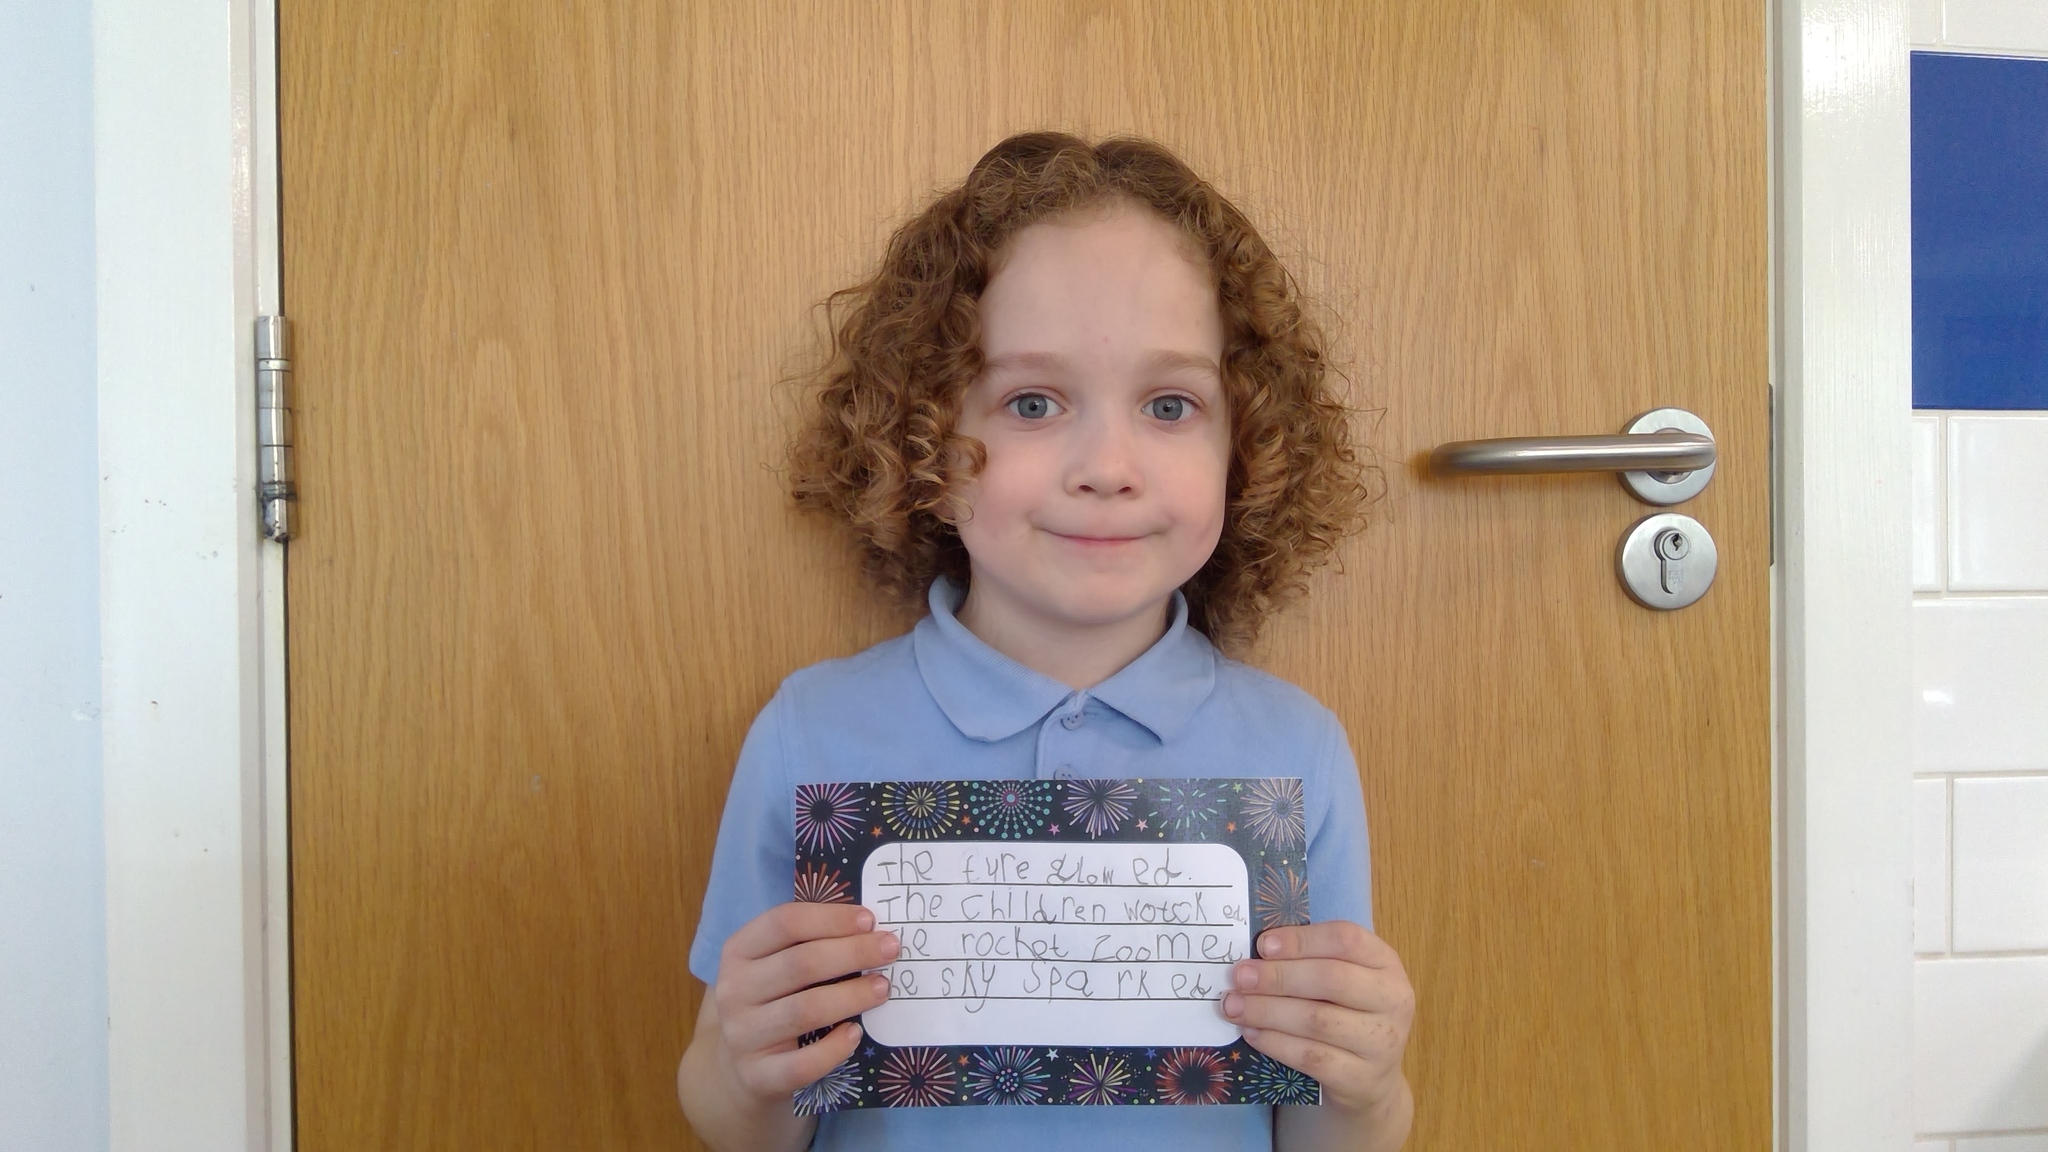 The fyre glowed.
The children wotcked.
The rocket zoomed
The sky sparked.